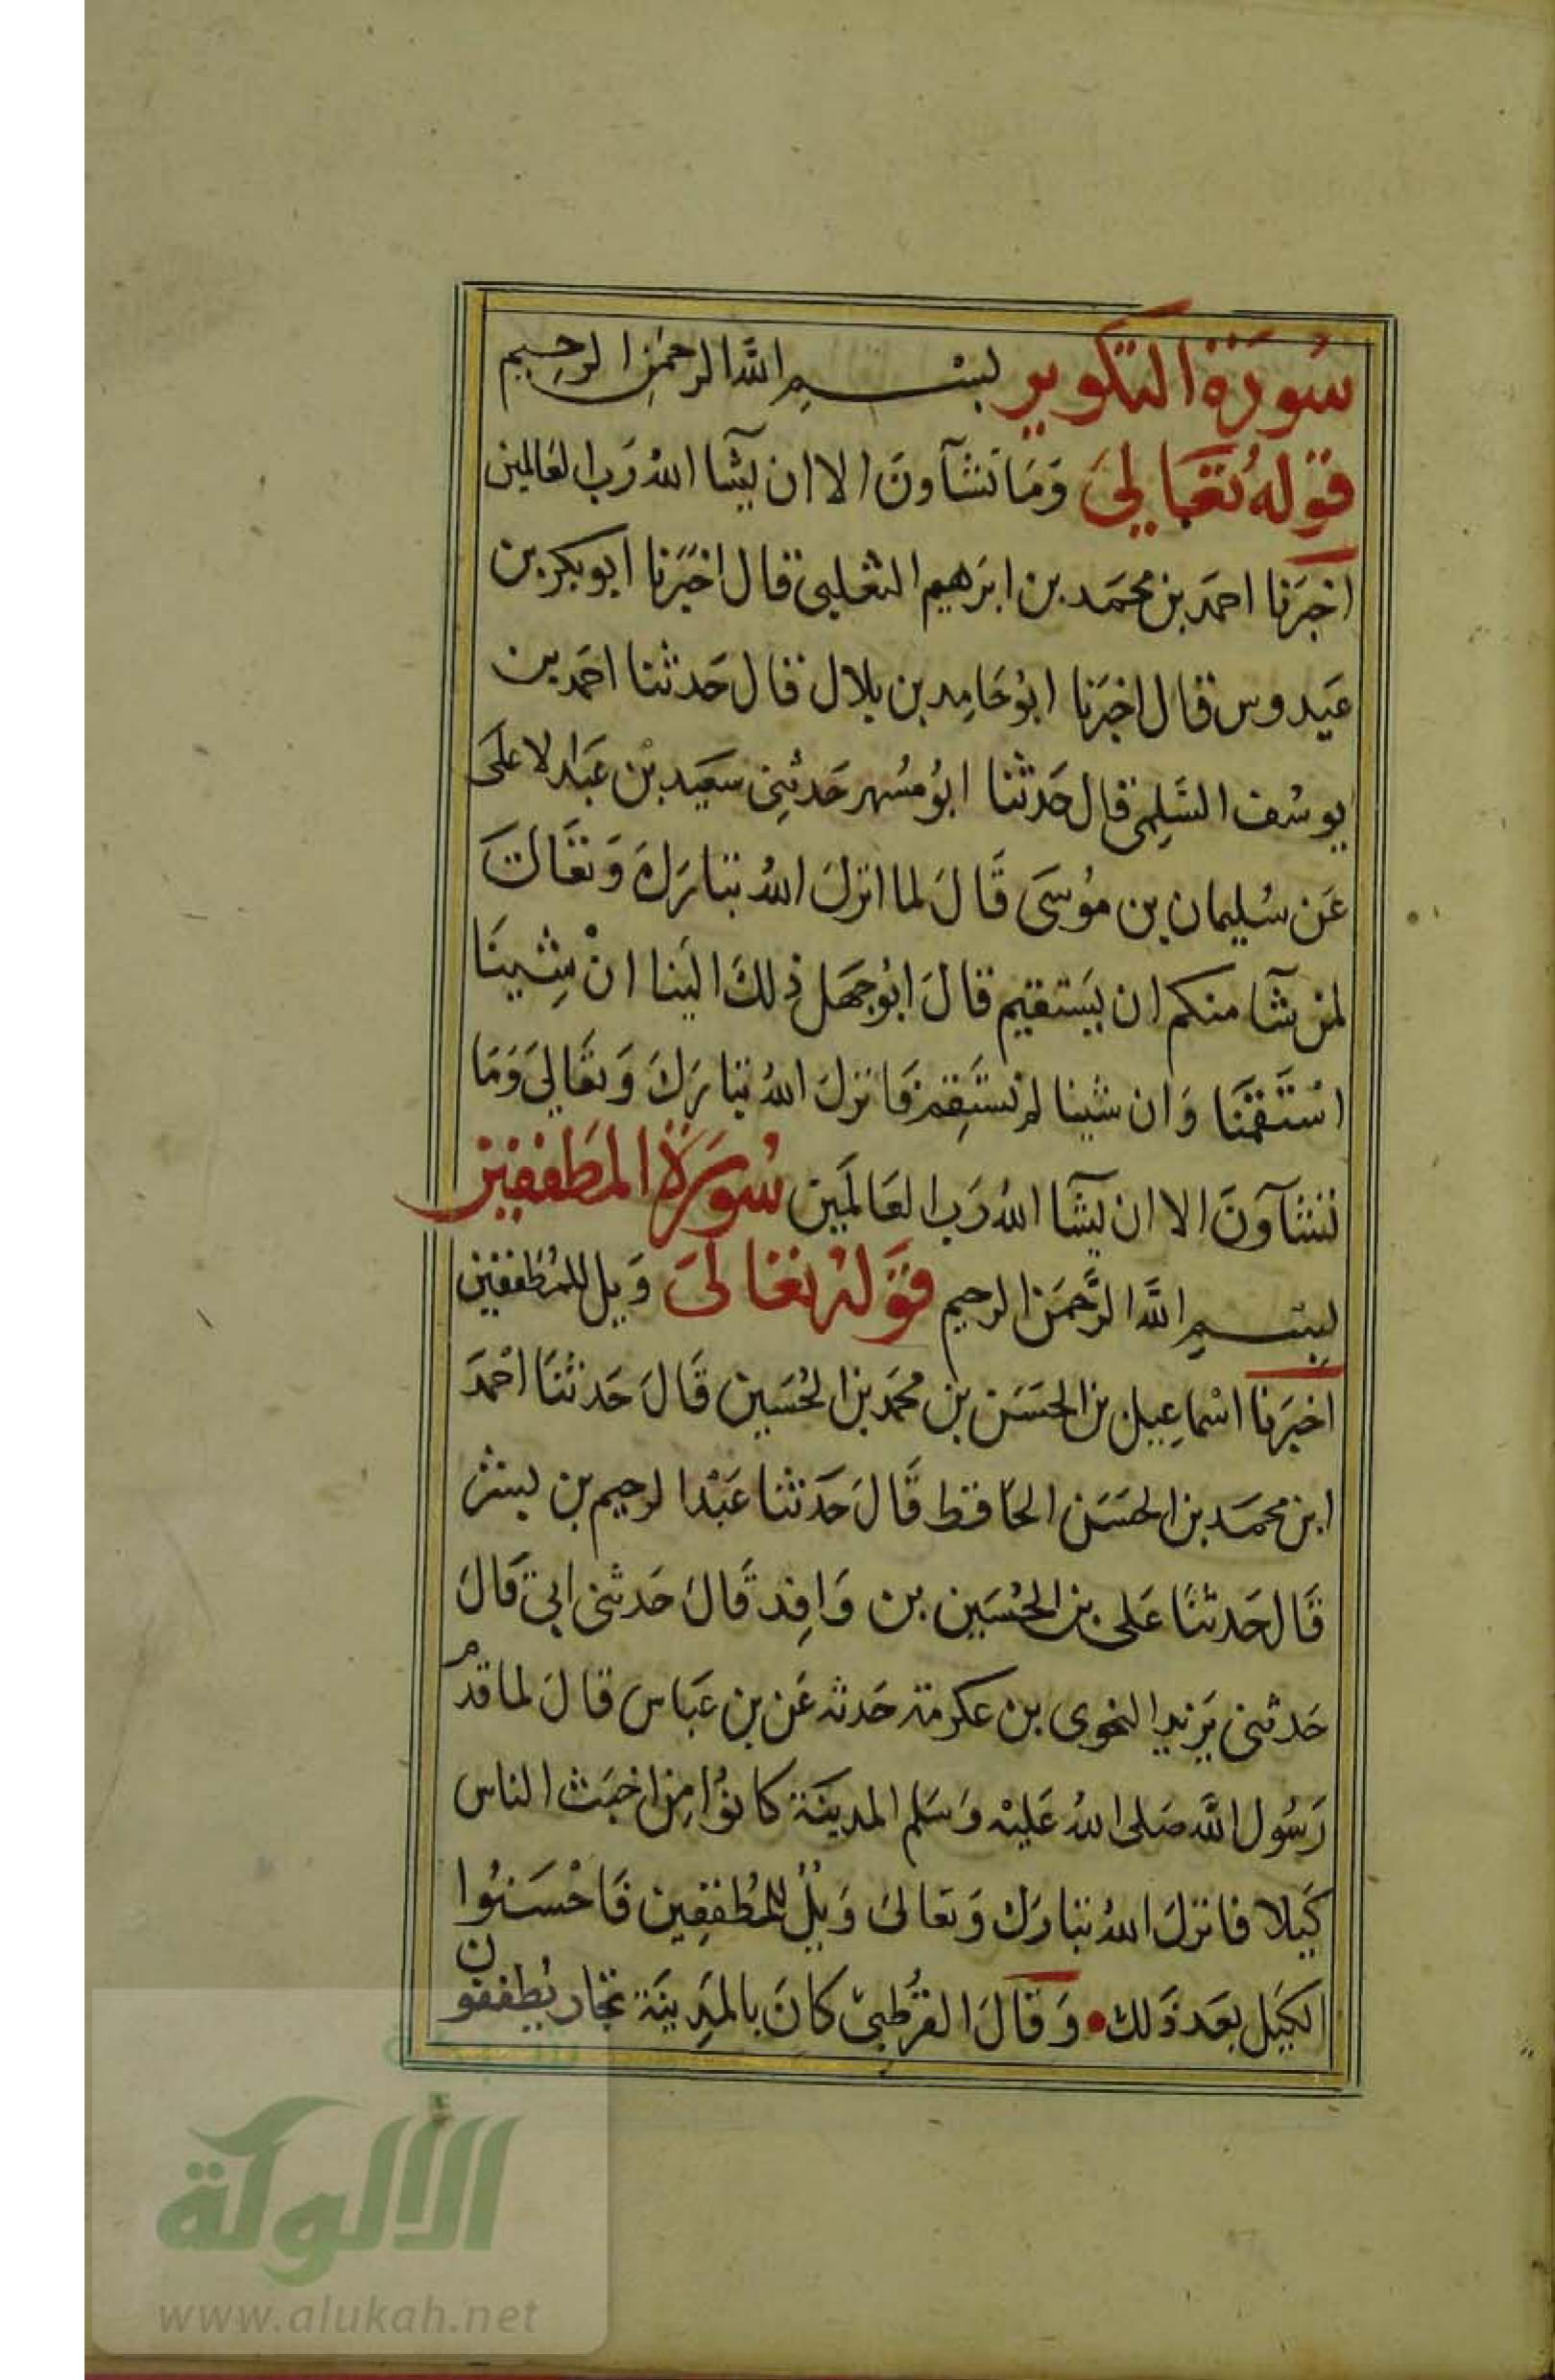 سُورَة التكوير بسم الله الرحمن الرحيم
قوله تعالى وَمَا تشآونَ الا ان يشا الله رَب العَالمين
اخبرَنا احمَد بن محمَد بن ابرَهيم الثعلبى قال اخبَرَنا ابو بكر بن
عَبدوس قال اخبَرَنا ابوُ حَامِد بن بلال قال حَدثنا احمَد بن
يوسُف السَلِمى قال حَدثنا ابوُ مسُهر حَدثنِى سَعيَد بْن عَبد الاعَلَى
عَن سُليمان بن موُسَى قَالَ لما انزلَ اللهُ تبارَكَ وَتعَالىَ
لمن شَآ منكم ان يَستقيم قالَ ابوُ جَهَل ذلكَ اليَنا انْ شِيينَا
استَقمَنا وَان شينا لم نستَقِم فَانزلَ اللهُ تبارَكَ وَتعَالىَ وَمَا
تشآونَ الا ان يشَآ اللهُ رَب العَالمَين سُورَة المطَففين
بسم الله الرَّحمَن الرحيم قوَله تعَالىَ وَيل للمُطَففين
اخبرَنا اسْماعِيل بن الحسَن بن محَمد بن الحُسَين قَالَ حَدثنَا احْمَد
ابن محمَد بن الحسَن الحَافظ قَالَ حَدثنا عَبْد الرحيم بن بشر
قَال حَدثنَا عَلى بن الحُسَين بن وَاقِد قَالَ حَدثنى ابي قَالَ
حَدثنى يَزيد النحوى بن عكرمة حَدثه عَن بن عَباس قالَ لما قدم
رَسُول الله صَلى اللهُ عَليْه وَسَلم المدينَة كانوُا مِن اخبَث الناس
كَيلا فانزلَ اللهُ تبارَك وَتعالىَ وَيْلٌ للمُطففِين فَاحْسَنوُا
الكيَل بعَد ذَلك • وَقالَ القرُطبىّ كانَ بالمَدِينَة تجار يُطففون
الألوكة
www.alukah.net